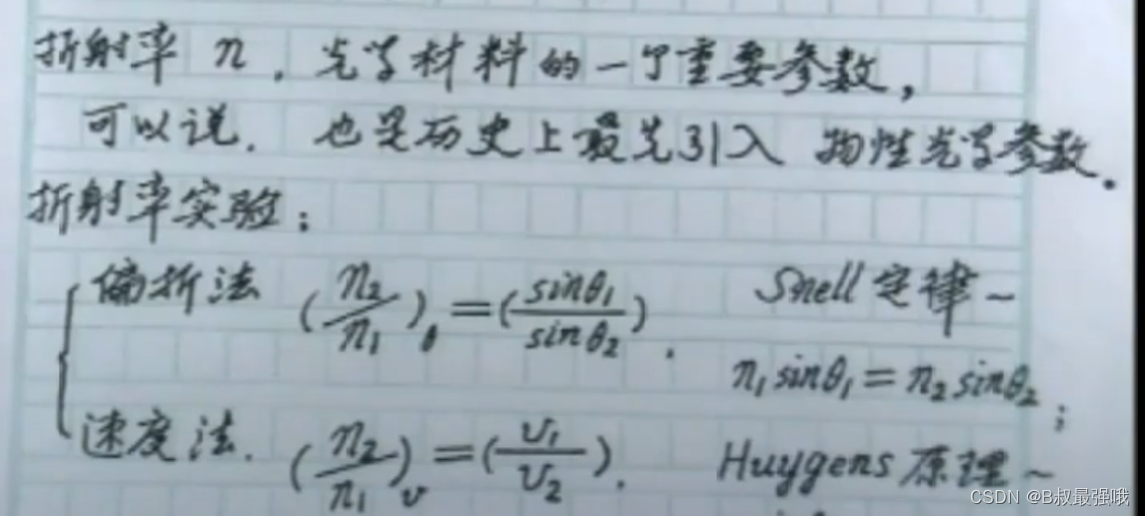 折射率 n，光学材料的一个重要参数，
可以说．也是历史上最先引入 物性光学参数．
折射率实验：
偏折法 (n₂/n₁)θ = (sinθ₁/sinθ₂)． Snell 定律~
n₁sinθ₁ = n₂sinθ₂；
速度法． (n₂/n₁)v = (v₁/v₂)． Huygens 原理~
CSDN @B叔最强哦